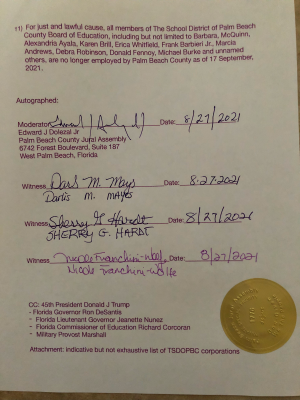 11) For just and lawful cause, all members of The School District of Palm Beach
County Board of Education, including but not limited to Barbara, McQuinn,
Alexandria Ayala, Karen Brill, Erica Whitfield, Frank Barbieri Jr., Marcia
Andrews, Debra Robinson, Donald Fennoy, Michael Burke and unnamed
others, are no longer employed by Palm Beach County as of 17 September,
2021.
Autographed:
Moderator Date: 8/27/2021
Edward J Dolezal Jr
Palm Beach County Jural Assembly
6742 Forest Boulevard, Suite 187
West Palm Beach, Florida
Witness Darlis M. Mays Date: 8-27-2021
Darlis M. MAYES
Witness Sherry G Hardt Date: 8/27/2021
SHERRY G. HARDT
Witness Nicole Franchini-Wolfe Date: 8/27/2021
Nicole Franchini-Wolfe
CC: 45th President Donald J Trump
- Florida Governor Ron DeSantis
- Florida Lieutenant Governor Jeanette Nunez
- Florida Commissioner of Education Richard Corcoran
- Military Provost Marshall
Attachment: indicative but not exhaustive list of TSDOPBC corporations